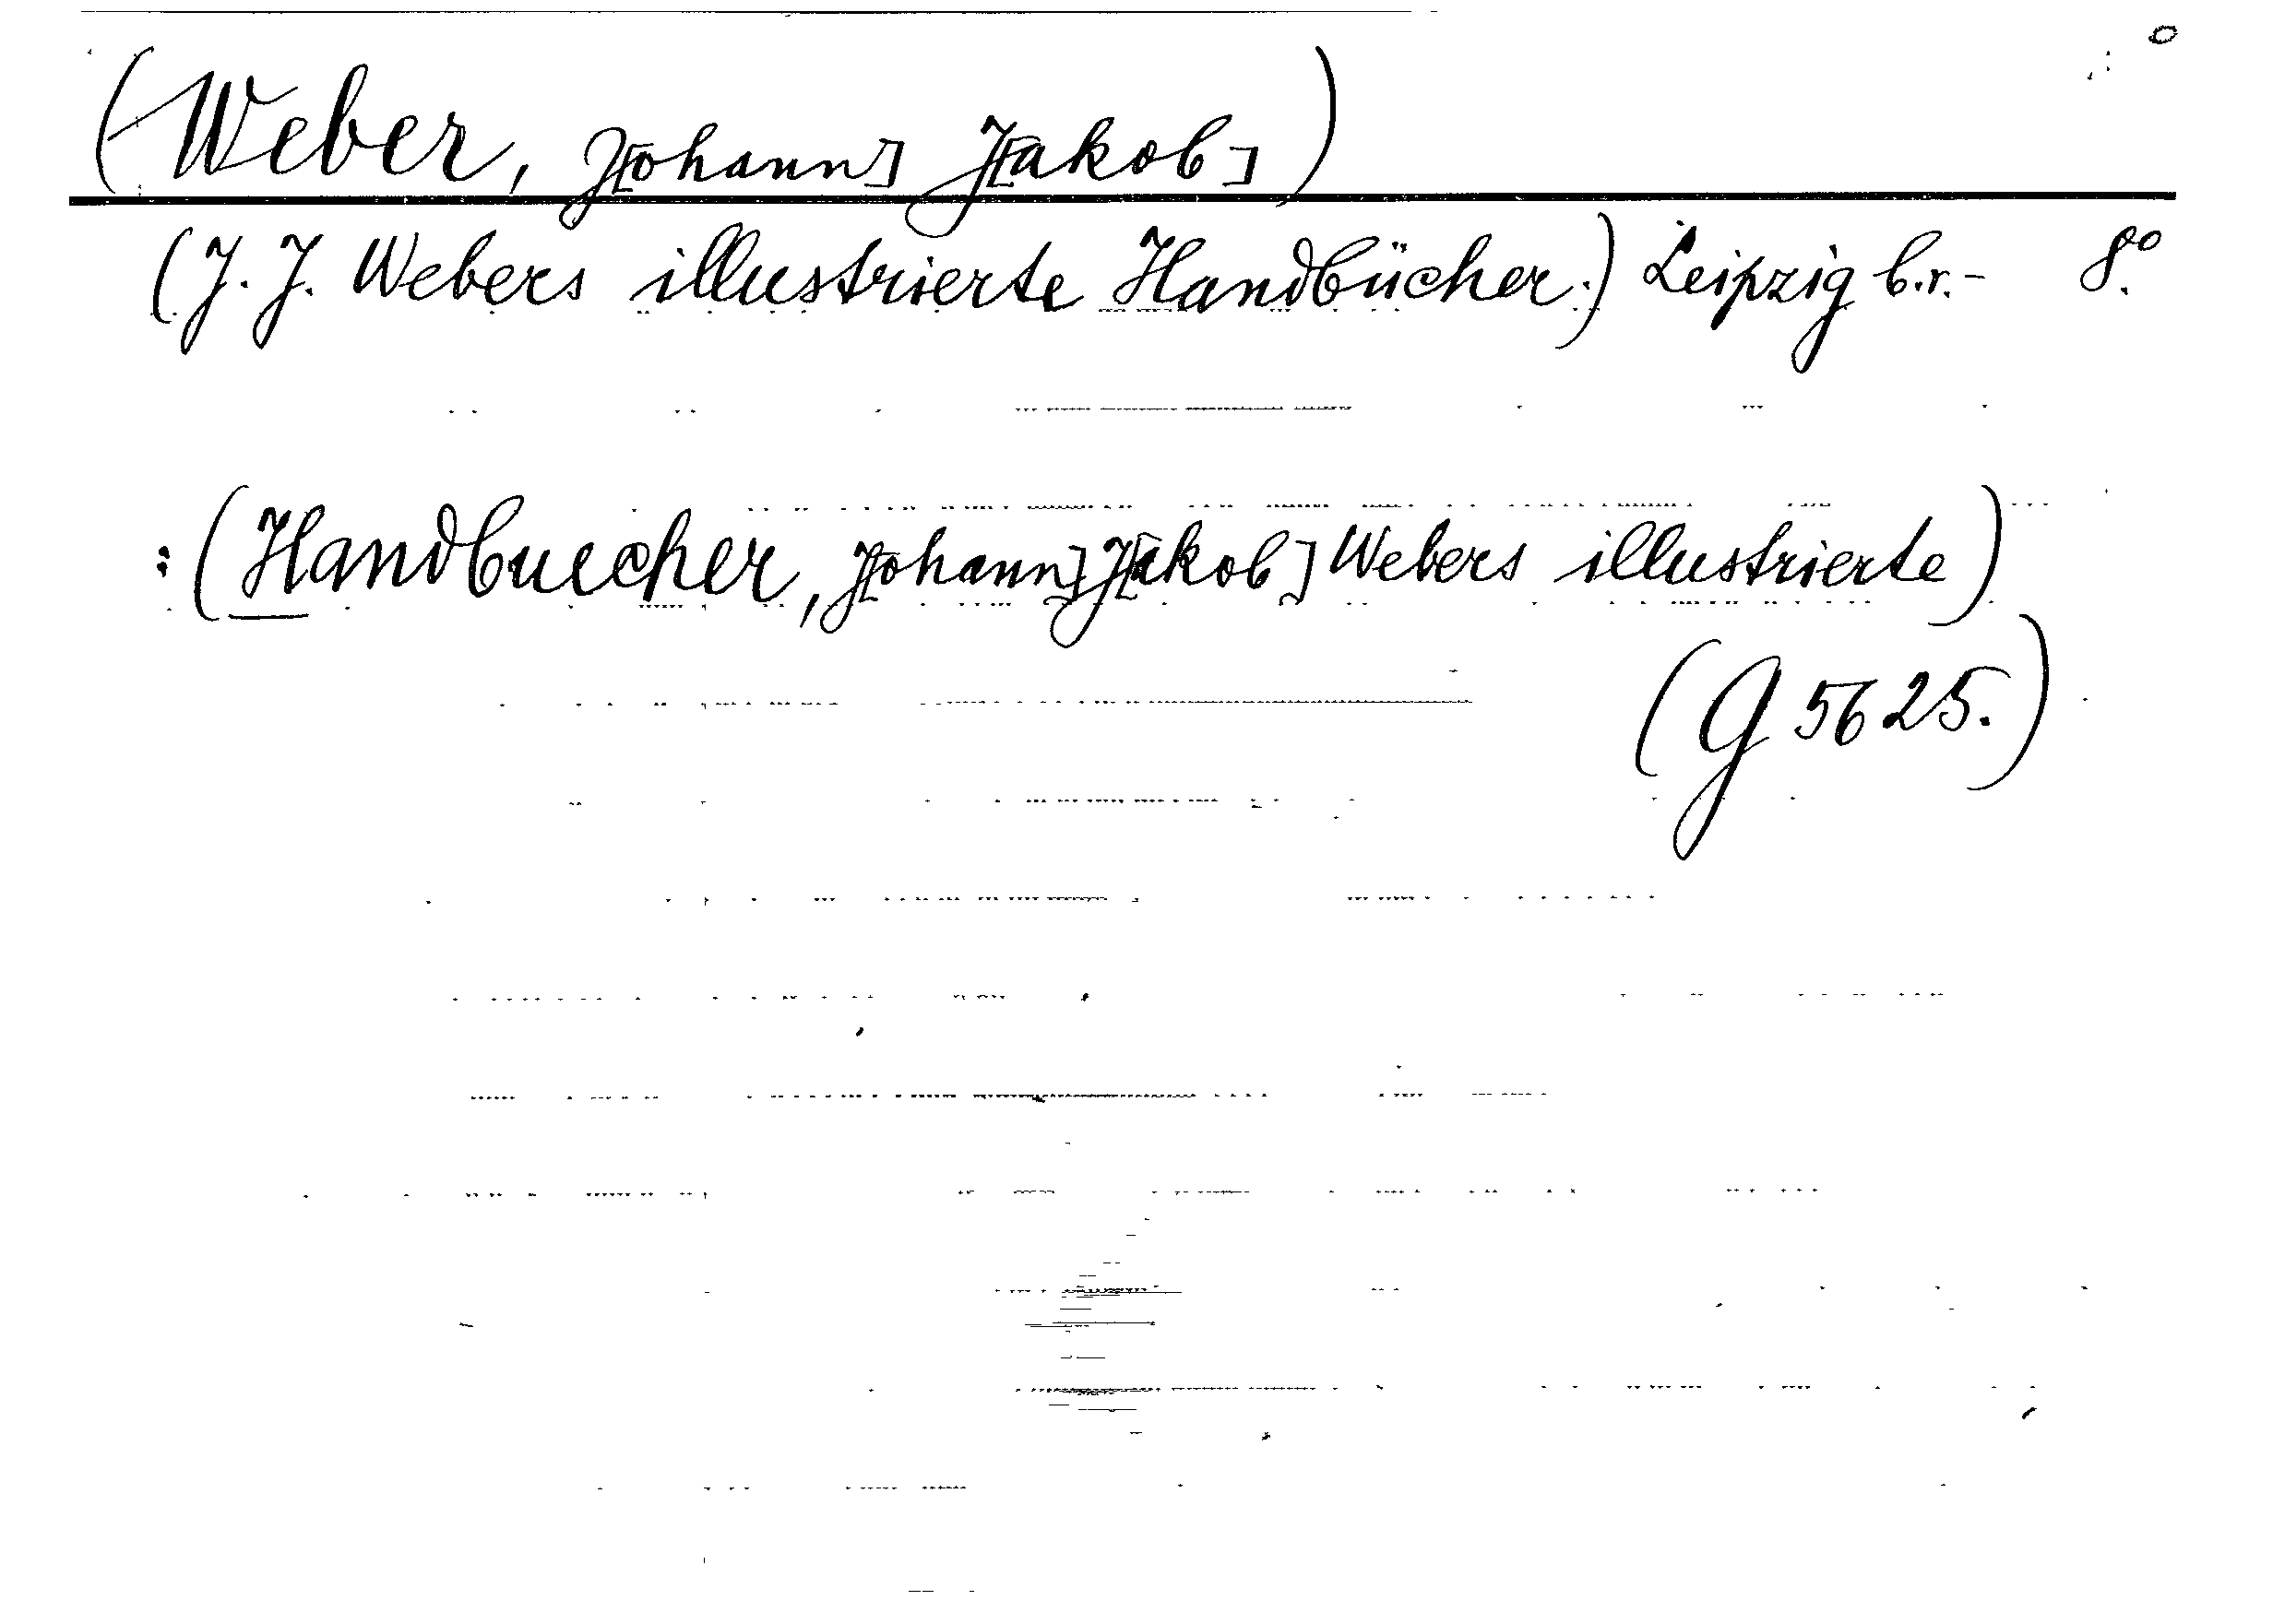 (Weber, J[ohann] J[akob])
(J. J. Webers illustrierte Handbücher.) Leipzig b.r.- 8.º
:(Handbuecher, J[ohann] J[akob] Webers illustrierte)
(G 5625.)